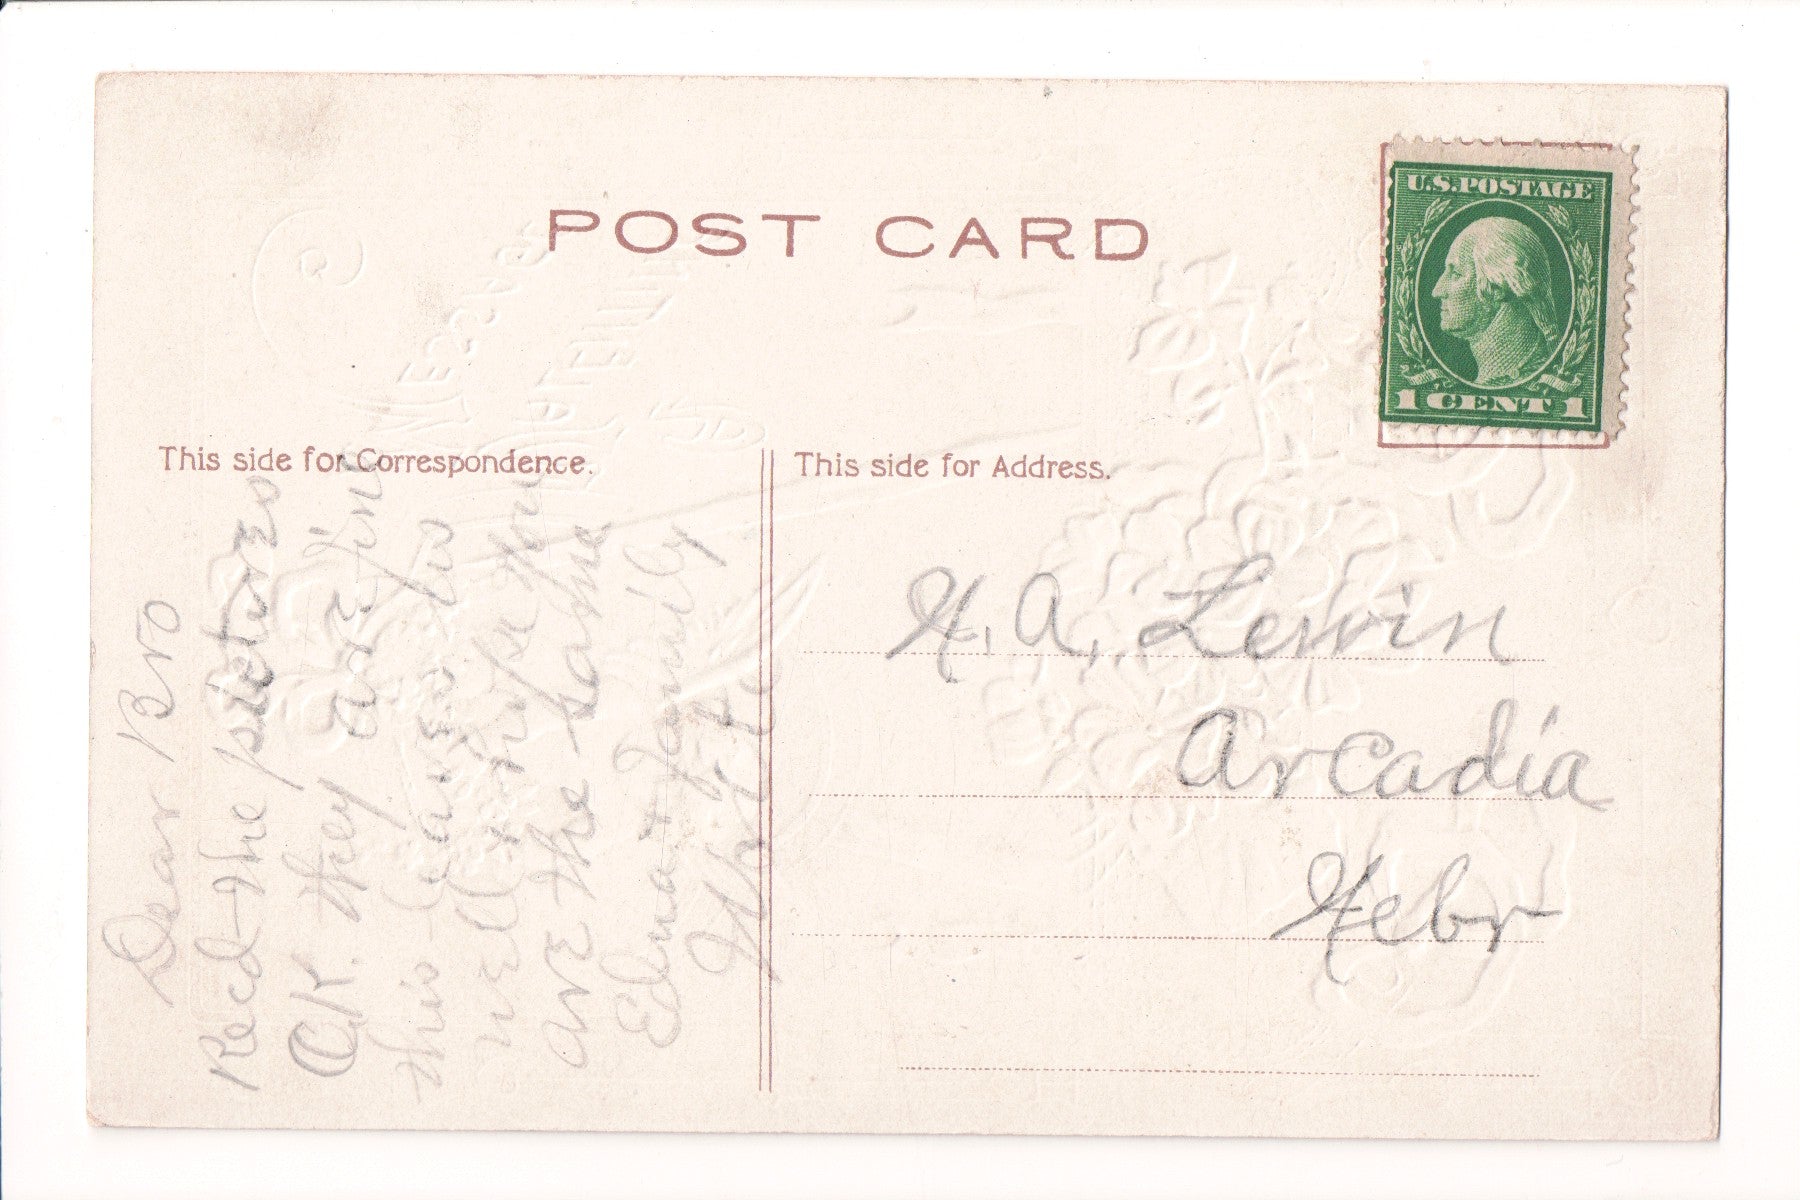 POST CARD
U.S. POSTAGE
1 CENT 1
This side for Correspondence.
This side for Address.
Dear Bro
Recd the pictures
O.K. they are fine
this leaves us
well & hope you
are the same
Edna & family
Write
H. A. Lewin
Arcadia
Nebr